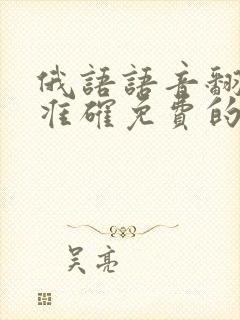 俄語語音翻
准確免費的
吳亮